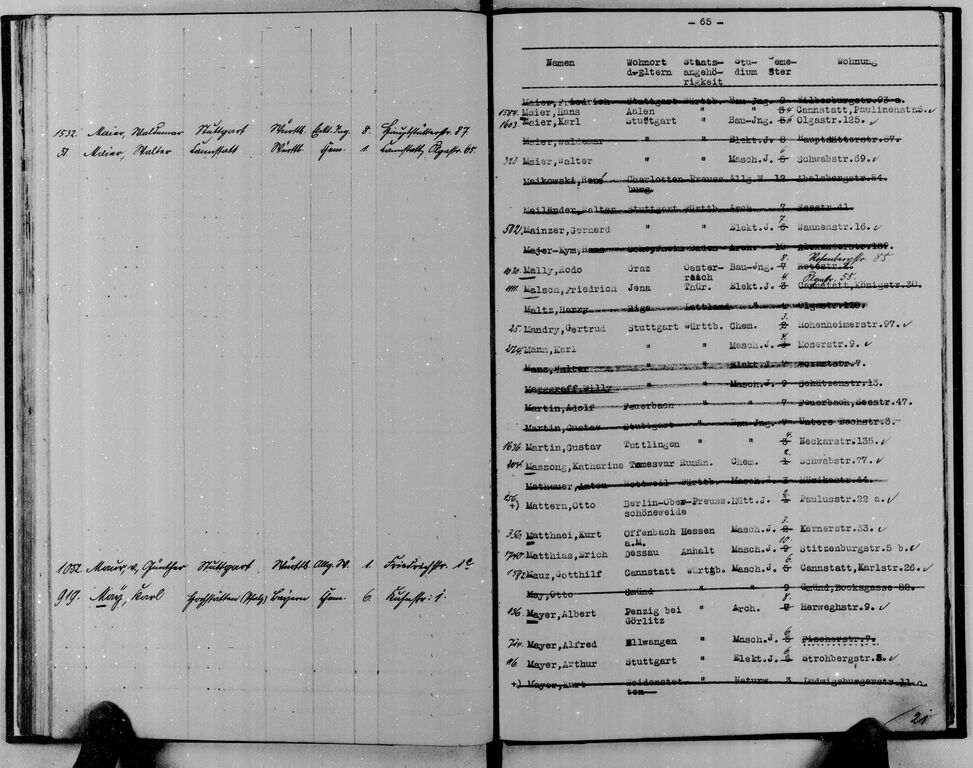 1532. Maier, Waldemar Stuttgart Württb. Elkt. Ing. 8. Hauptstätterstr. 87
51 Maier, Walter Cannstatt Württb. Chem. 1. Cannstatt, Olgastr. 65.
1052. Maur, v., Günther Stuttgart Württb. Allg. W. 1. Friedrichstr. 1c
919. May, Karl Hochstätten (Pfalz) Bayern Chem. 6. Kuhnstr. 1.
- 65 -
Namen Wohnort Staats- Stu- Seme- Wohnung
d.Eltern angehö- dium ster
rigkeit
Maier, Friedrich Stuttgart Württb. Bau-Jng. 9 Silberburgstr. 93 a.
1584. Maier, Hans Aalen " " 3 4 Cannstatt, Paulinenstr.
1603 Maier, Karl Stuttgart " Bau-Jng. 5 6 Olgastr. 125.
Maier, Waldemar " " Elekt.J. 8 Hauptstätterstr. 87.
323 Maier, Walter " " Masch.J. Schwabstr. 69.
Maikowski, René Charlotten- Preuss. Allg.W. 12 Abelsbergstr. 54
burg.
Mailänder, Walter Stuttgart Württb. Arch. 7. Seestr. 41.
7.
582. Mainzer, Gerhard " " Elekt.J. Wannenstr. 16.
Majer-Kym, Hans Schopfheim Baden Arch. 10 Alexanderstr. 139.
8. Rotenbergstr 85
1030 Mally, Rodo Graz Oester- Bau-Jng. 7 Rotestr. 2.
reich 4 Olgastr. 55.
1111. Malsch, Friedrich Jena Thür. Elekt.J. 3 Cannstatt, Königstr. 30.
Maltz, Harry Riga Lettland " 4 Olgastr. 128.
3.
25. Mandry, Gertrud Stuttgart Württb. Chem. 2 Hohenheimerstr. 97.
4.
224. Mann, Karl " " Masch.J. 3 Moserstr. 9.
Manz, Walter " " Elekt.J. 4 Mozartstr. 7.
Marggraff, Willy " " Masch.J. 9 Schützenstr. 13.
Martin, Adolf Feuerbach " " 7 Feuerbach, Seestr. 47.
Martin, Gustav Stuttgart " Bau-Jng. 7 Untere Bachstr. 3.
4.
1636. Martin, Gustav Tuttlingen " " 3 Neckarstr. 135.
2.
204. Massong, Katharine Temesvar Rumän. Chem. 1 Schwabstr. 77.
Mathauer, Anton Rottweil Württb. Masch.J. 3 Mörikestr. 44.
256. 2.
+) Mattern, Otto Berlin-Ober- Preuss. Hütt.J. 1 Paulusstr. 22 a.
schöneweide
356. Matthaei, Kurt Offenbach Hessen Masch.J. 8 Kernerstr. 33.
a.M. 10.
1740. Matthias, Erich Dessau Anhalt Masch.J. 9 Stitzenburgstr. 5 b.
6
1592 Mauz, Gotthilf Cannstatt Württbg. Masch.J. 5 Cannstatt, Karlstr. 26.
May, Otto Gmünd " " 9 Gmünd, Bocksgasse 22.
8.
136. Mayer, Albert Penzig bei " Arch. 7 Herweghstr. 9.
Görlitz
6
724. Mayer, Alfred Ellwangen " Masch.J. 5 Fischerstr. 7.
6
116 Mayer, Arthur Stuttgart " Elekt.J. 5 Strohbergstr.
+) Mayer, Kurt Heidenstet- " Naturw. 3 Ludwigsburgerstr. 11 a.
ten
21